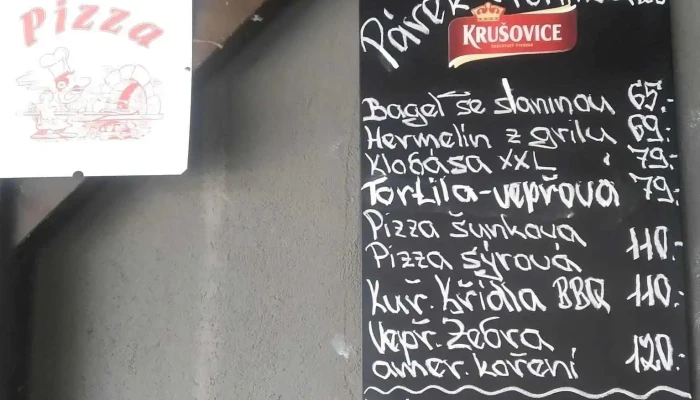 Pizza
Párek
KRUŠOVICE
Bagel se slaninou 65.-
Hermelín z grilu 69.-
Klobása XXL 79.-
Tortila-vepřova 79.-
Pizza šunková
Pizza sýrová 110.-
Kuř. křídla BBQ 110.-
Vepř. Žebra
amer. koření 120.-